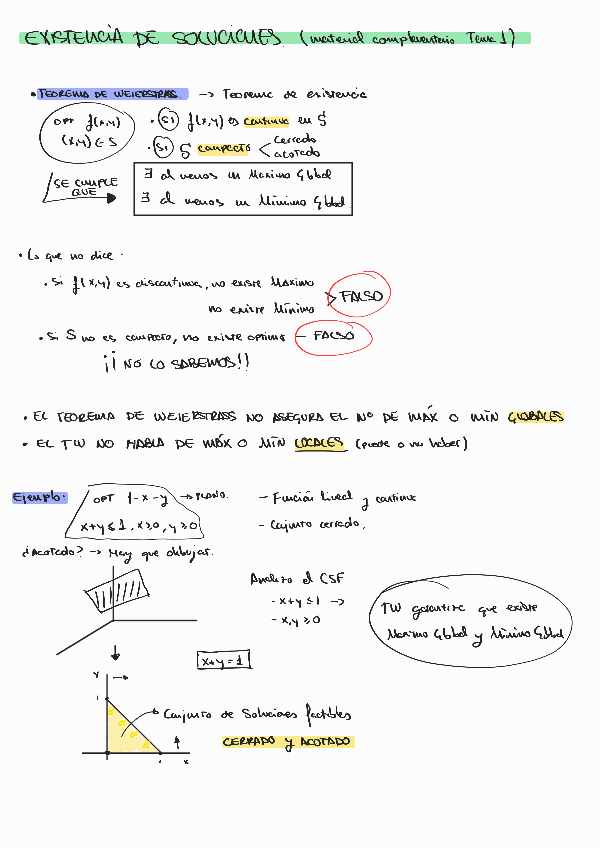 EXISTENCIA DE SOLUCIONES (material complementario Tema 1)
• TEOREMA DE WEIERSTRASS. → Teorema de existencia
OPT f(x,y)
(x,y) ∈ S
• SI f(x,y) es continua en S
• SI S compacto < cerrado
acotado
SE CUMPLE QUE →
∃ al menos un Maximo Global
∃ al menos un Mínimo Global
• Lo que no dice:
• Si f(x,y) es discontinua, no existe Maximo
no existe Mínimo
> FALSO
• Si S no es compacto, no existe optimo — FALSO
¡¡ NO LO SABEMOS!!
• EL TEOREMA DE WEIERSTRASS NO ASEGURA EL Nº DE MÁX O MÍN GLOBALES
• EL TW NO HABLA DE MÁX O MÍN LOCALES (puede o no haber)
Ejemplo:
OPT 1-x-y → PLANO.
x+y≤1, x≥0, y≥0
- Función lineal y continua
- Conjunto cerrado.
¿Acotado? → Hay que dibujar.
Analizo el CSF
- x+y ≤ 1 →
- x,y ≥ 0
TW garantiza que existe
Maximo Global y Mínimo Global
x+y=1
Y
1
→ Conjunto de Soluciones factibles
CERRADO y ACOTADO
1
x